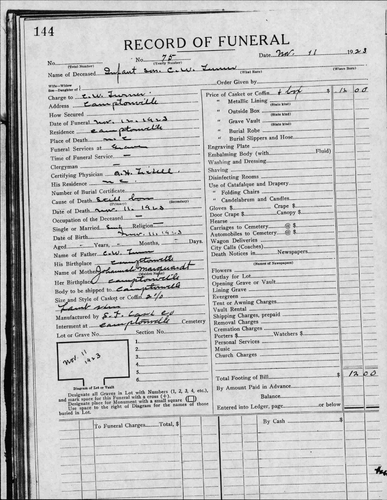 144
RECORD OF FUNERAL
No. No. 75 Date Nov. 11 1923
(Total Number) (Yearly Number)
Name of Deceased Infant son C.W. Turner
(What Race) (Where Born)
Wife—Widow
Son—Daughter of Order Given by
Charge to C.W. Turner
Address Camptonville
How Secured
Date of Funeral Nov. 12, 1923
Residence Camptonville
Place of Death
Funeral Services at Grave
Time of Funeral Service —
Clergyman —
Certifying Physician
His Residence
Number of Burial Certificate
Cause of Death Still born
Date of Death Nov. 11, 1923
Occupation of the Deceased —
Single or Married Religion
Date of Birth Nov. 11, 1923
Aged Years, Months, Days
Name of Father C.W. Turner
His Birthplace Camptonville
Name of Mother Johannah
Her Birthplace Camptonville
Body to be shipped to Camptonville
Size and Style of Casket or Coffin 2/0
Manufactured by S.F. Casket Co
Interment at Camptonville Cemetery
Lot or Grave No. Section No.
Nov 11
1923
1.
2.
3.
4.
5.
6.
Diagram of Lot or Vault
Designate all Graves in Lot with Numbers (1, 2, 3, 4, etc.),
and mark space for this Funeral with a cross (+).
Designate place for Monument with a small square (□)
Use space to the right of Diagram for the names of those
buried in Lot.
Price of Casket or Coffin & box $ 12 00
" Metallic Lining (State Kind)
" Outside Box (State Kind)
" Grave Vault (State Kind)
" Burial Robe (State Kind)
" Burial Slippers and Hose
Engraving Plate
Embalming Body (with Fluid)
Washing and Dressing
Shaving
Disinfecting Rooms
Use of Catafalque and Drapery
" Folding Chairs
" Candelabrum and Candles
Gloves $ Crape $
Door Crape $ Canopy $
Hearse
Carriages to Cemetery @ $
Automobiles to Cemetery @ $
Wagon Deliveries
City Calls (Coaches)
Death Notices in Newspapers
(Names of Newspapers)
Flowers
Outlay for Lot
Opening Grave or Vault
Lining Grave
Evergreen
Tent or Awning Charges
Vault Rental
Shipping Charges, prepaid
Removal Charges
Cremation Charges
Porters $ Watchers $
Personal Services
Music
Church Charges
Total Footing of Bill $ 12 00
By Amount Paid in Advance
Balance
Entered into Ledger, page or below.
To Funeral Charges, Total By Cash